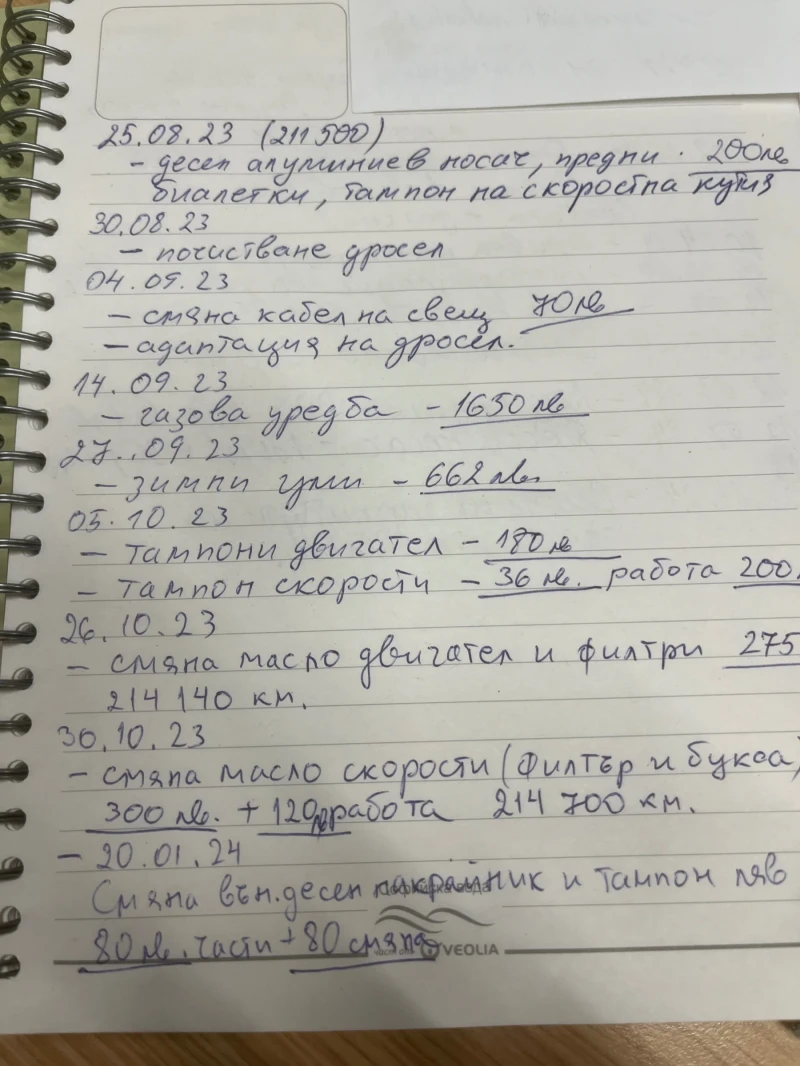 25.08.23 (211500)
- десен алуминиев носач, предни . 200лв
биалетки, тампон на скоростна кутия
30.08.23
- почистване дросел
04.09.23
- смяна кабел на свещ 70лв
- адаптация на дросел.
14.09.23
- газова уредба - 1650 лв
27.09.23
- зимни гуми - 662 лв.
05.10.23
- тампони двигател - 180 лв
- тампон скорости - 36 лв. работа 200
26.10.23
- смяна масло двигател и филтри 275
214 140 км.
30.10.23
- смяна масло скорости (филтър и букса)
300 лв. + 120лв работа 214 700 км.
- 20.01.24
Смяна вън. десен накрайник и тампон ляв
80 лв. части + 80 смяна
VEOLIA